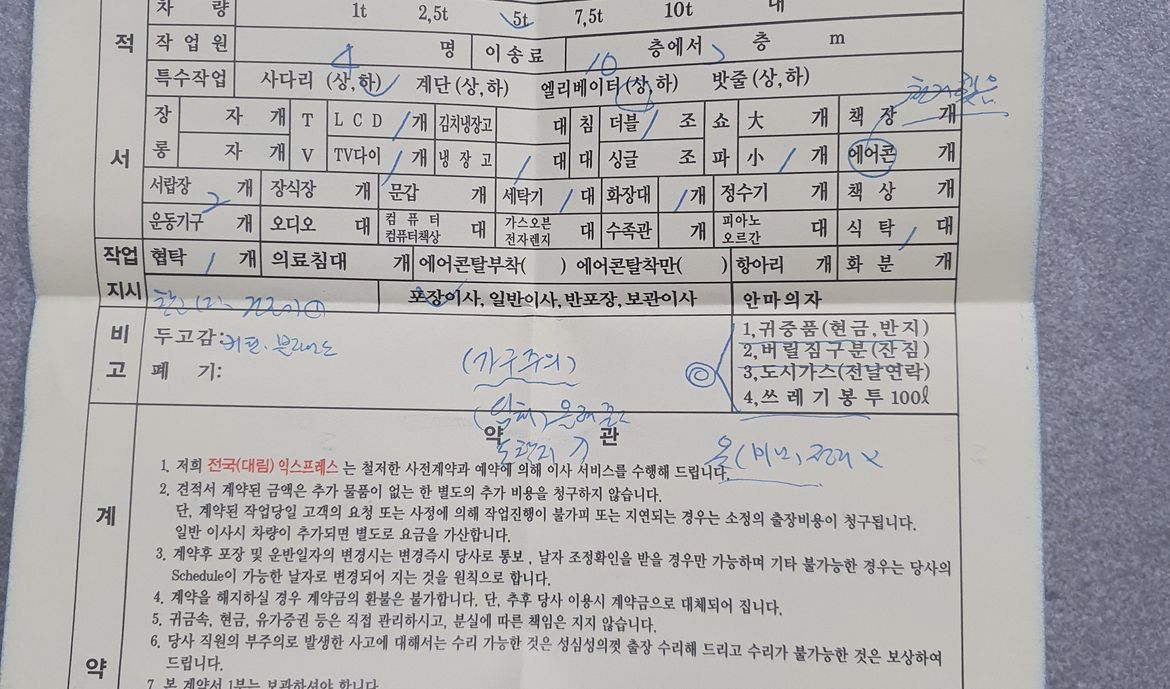 차 량 1t 2,5t 5t 7,5t 10t 대
적 작업원 4 명 이송료 10 층에서 층 m
특수작업 사다리 (상,하) 계단 (상,하) 엘리베이터 (상,하) 밧줄 (상,하)
장 자 개 T LCD / 개 김치냉장고 대 침 더블 / 조 쇼 大 개 책 장 개
서 롱 자 개 V TV다이 / 개 냉 장 고 / 대 대 싱글 조 파 小 / 개 에어콘 개
서랍장 2 개 장식장 개 문갑 개 세탁기 / 대 화장대 / 개 정수기 개 책 상 개
운동기구 개 오디오 대 컴 퓨 터 컴퓨터책상 대 가스오븐 전자렌지 대 수족관 개 피아노 오르간 대 식 탁 / 대
작업 협탁 / 개 의료침대 개 에어콘탈부착( ) 에어콘탈착만( ) 항아리 개 화 분 개
지시 포장이사, 일반이사, 반포장, 보관이사 안마의자
비 두고감: 커튼, 블라인드 1,귀중품(현금,반지)
2,버릴짐구분(잔짐)
고 폐 기: (가구주의) 3,도시가스(전날연락)
4,쓰레기봉투 100ℓ
약 관
1. 저희 전국(대림) 익스프레스 는 철저한 사전계약과 예약에 의해 이사 서비스를 수행해 드립니다.
2. 견적서 계약된 금액은 추가 물품이 없는 한 별도의 추가 비용을 청구하지 않습니다.
계 단, 계약된 작업당일 고객의 요청 또는 사정에 의해 작업진행이 불가피 또는 지연되는 경우는 소정의 출장비용이 청구됩니다.
일반 이사시 차량이 추가되면 별도로 요금을 가산합니다.
3. 계약후 포장 및 운반일자의 변경시는 변경즉시 당사로 통보, 날자 조정확인을 받을 경우만 가능하며 기타 불가능한 경우는 당사의
Schedule이 가능한 날자로 변경되어 지는 것을 원칙으로 합니다.
4. 계약을 해지하실 경우 계약금의 환불은 불가합니다. 단, 추후 당사 이용시 계약금으로 대체되어 집니다.
5. 귀금속, 현금, 유가증권 등은 직접 관리하시고, 분실에 따른 책임은 지지 않습니다.
6. 당사 직원의 부주의로 발생한 사고에 대해서는 수리 가능한 것은 성심성의껏 출장 수리해 드리고 수리가 불가능한 것은 보상하여
약 드립니다.
7. 본 계약서 1부는 보관하셔야 합니다.